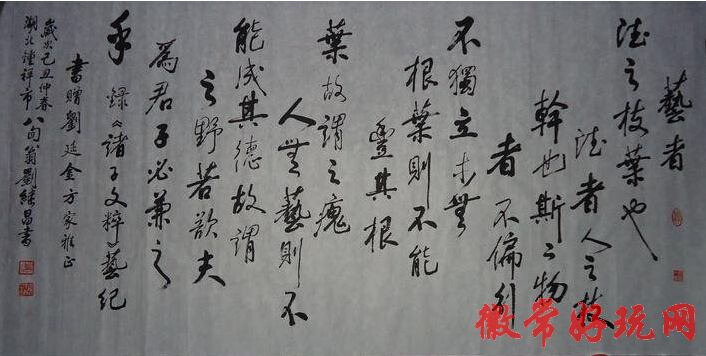 藝者
德之枝葉也
德者人之枝
幹也斯二物
者不偏行
不獨立木無
根葉則不能
豐其根
葉故謂之瘣
人無藝則不
能成其德故謂
之野若欲夫
為君子必兼之
乎 錄《諸子文粹》藝紀
書贈劉延金方家雅正
歲次己丑仲春
湖北鍾祥市八旬翁劉継昌書
徽常好玩网